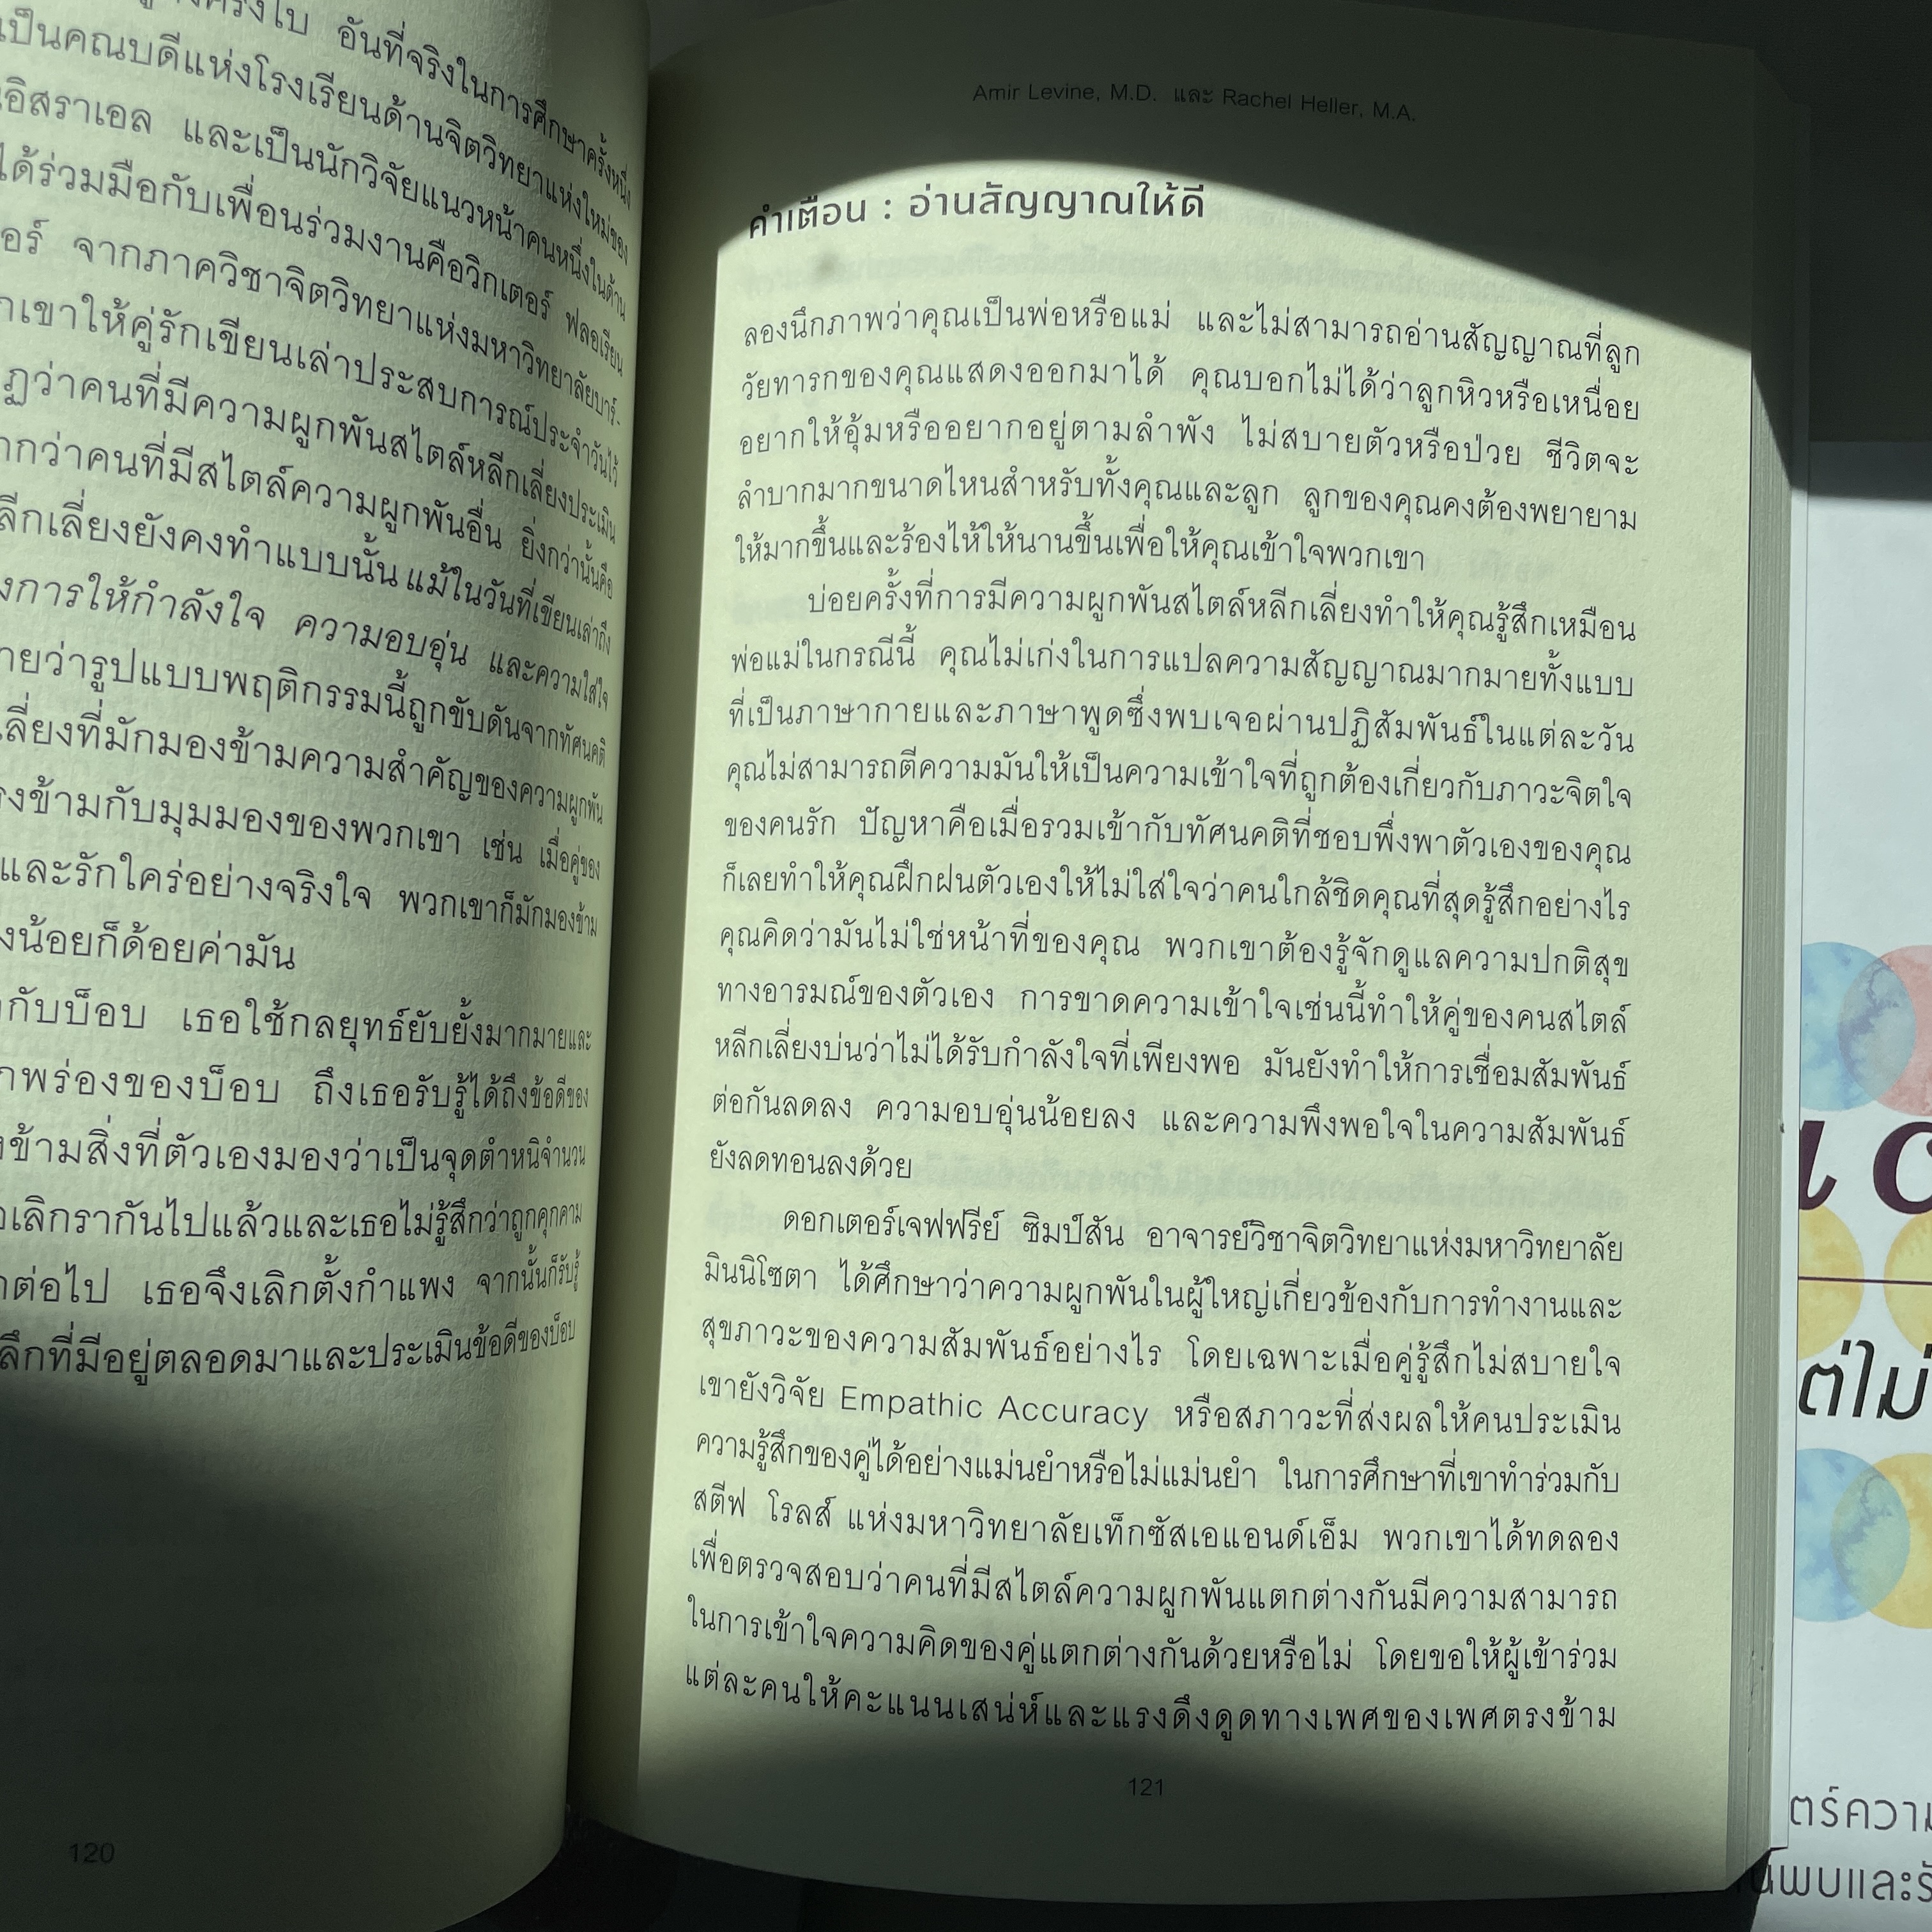 อันที่จริงในการศึกษาครั้งหนึ่ง
เป็นคณบดีแห่งโรงเรียนด้านจิตวิทยาแห่งใหม่ของ
อิสราเอล และเป็นนักวิจัยแนวหน้าคนหนึ่งในด้าน
ได้ร่วมมือกับเพื่อนร่วมงานคือวิกเตอร์ ฟลอเรียน
จากภาควิชาจิตวิทยาแห่งมหาวิทยาลัยบาร์-
เขาให้คู่รักเขียนเล่าประสบการณ์ประจำวันไว้
ว่าคนที่มีความผูกพันสไตล์หลีกเลี่ยงประเมิน
กว่าคนที่มีสไตล์ความผูกพันอื่น ยิ่งกว่านั้นคือ
ลีกเลี่ยงยังคงทำแบบนั้น แม้ในวันที่เขียนเล่าถึง
การให้กำลังใจ ความอบอุ่น และความใส่ใจ
ายว่ารูปแบบพฤติกรรมนี้ถูกขับดันจากทัศนคติ
ลี่ยงที่มักมองข้ามความสำคัญของความผูกพัน
งข้ามกับมุมมองของพวกเขา เช่น เมื่อคู่ของ
และรักใคร่อย่างจริงใจ พวกเขาก็มักมองข้าม
งน้อยก็ด้อยค่ามัน
กับบ็อบ เธอใช้กลยุทธ์ยับยั้งมากมายและ
กพร่องของบ็อบ ถึงเธอรับรู้ได้ถึงข้อดีของ
ข้ามสิ่งที่ตัวเองมองว่าเป็นจุดตำหนิจำนวน
เลิกรากันไปแล้วและเธอไม่รู้สึกว่าถูกคุกคาม
ต่อไป เธอจึงเลิกตั้งกำแพง จากนั้นก็รับรู้
ลึกที่มีอยู่ตลอดมาและประเมินข้อดีของบ็อบ
120
Amir Levine, M.D. และ Rachel Heller, M.A.
คำเตือน : อ่านสัญญาณให้ดี
ลองนึกภาพว่าคุณเป็นพ่อหรือแม่ และไม่สามารถอ่านสัญญาณที่ลูก
วัยทารกของคุณแสดงออกมาได้ คุณบอกไม่ได้ว่าลูกหิวหรือเหนื่อย
อยากให้อุ้มหรืออยากอยู่ตามลำพัง ไม่สบายตัวหรือป่วย ชีวิตจะ
ลำบากมากขนาดไหนสำหรับทั้งคุณและลูก ลูกของคุณคงต้องพยายาม
ให้มากขึ้นและร้องไห้ให้นานขึ้นเพื่อให้คุณเข้าใจพวกเขา
บ่อยครั้งที่การมีความผูกพันสไตล์หลีกเลี่ยงทำให้คุณรู้สึกเหมือน
พ่อแม่ในกรณีนี้ คุณไม่เก่งในการแปลความสัญญาณมากมายทั้งแบบ
ที่เป็นภาษากายและภาษาพูดซึ่งพบเจอผ่านปฏิสัมพันธ์ในแต่ละวัน
คุณไม่สามารถตีความมันให้เป็นความเข้าใจที่ถูกต้องเกี่ยวกับภาวะจิตใจ
ของคนรัก ปัญหาคือเมื่อรวมเข้ากับทัศนคติที่ชอบพึ่งพาตัวเองของคุณ
ก็เลยทำให้คุณฝึกฝนตัวเองให้ไม่ใส่ใจว่าคนใกล้ชิดคุณที่สุดรู้สึกอย่างไร
คุณคิดว่ามันไม่ใช่หน้าที่ของคุณ พวกเขาต้องรู้จักดูแลความปกติสุข
ทางอารมณ์ของตัวเอง การขาดความเข้าใจเช่นนี้ทำให้คู่ของคนสไตล์
หลีกเลี่ยงบ่นว่าไม่ได้รับกำลังใจที่เพียงพอ มันยังทำให้การเชื่อมสัมพันธ์
ต่อกันลดลง ความอบอุ่นน้อยลง และความพึงพอใจในความสัมพันธ์
ยังลดทอนลงด้วย
ดอกเตอร์เจฟฟรีย์ ซิมป์สัน อาจารย์วิชาจิตวิทยาแห่งมหาวิทยาลัย
มินนิโซตา ได้ศึกษาว่าความผูกพันในผู้ใหญ่เกี่ยวข้องกับการทำงานและ
สุขภาวะของความสัมพันธ์อย่างไร โดยเฉพาะเมื่อคู่รู้สึกไม่สบายใจ
เขายังวิจัย Empathic Accuracy หรือสภาวะที่ส่งผลให้คนประเมิน
ความรู้สึกของคู่ได้อย่างแม่นยำหรือไม่แม่นยำ ในการศึกษาที่เขาทำร่วมกับ
สตีฟ โรลส์ แห่งมหาวิทยาลัยเท็กซัสเอแอนด์เอ็ม พวกเขาได้ทดลอง
เพื่อตรวจสอบว่าคนที่มีสไตล์ความผูกพันแตกต่างกันมีความสามารถ
ในการเข้าใจความคิดของคู่แตกต่างกันด้วยหรือไม่ โดยขอให้ผู้เข้าร่วม
แต่ละคนให้คะแนนเสน่ห์และแรงดึงดูดทางเพศของเพศตรงข้าม
121
ต่ไม่
ตร์ความ
นพบและรั